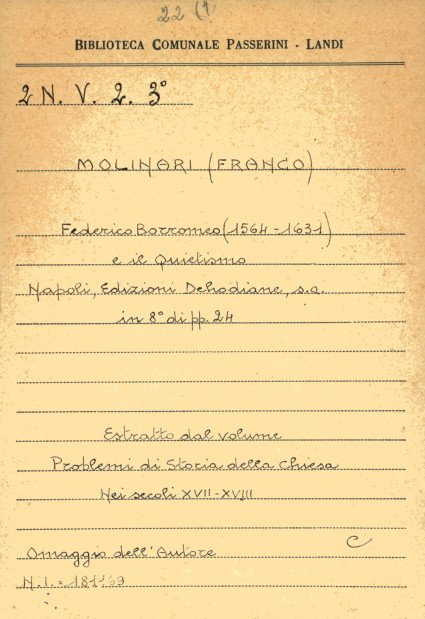 22 (1
BIBLIOTECA COMUNALE PASSERINI - LANDI
2 N. V. 2. 3°
MOLINARI (FRANCO)
Federico Borromeo (1564 - 1631)
e il Quietismo
Napoli, Edizioni Dehodiane, s.a.
in 8° di pp. 24
Estratto dal volume
Problemi di Storia della Chiesa
Nei secoli XVII - XVIII
Omaggio dell'Autore
C
N. I. =